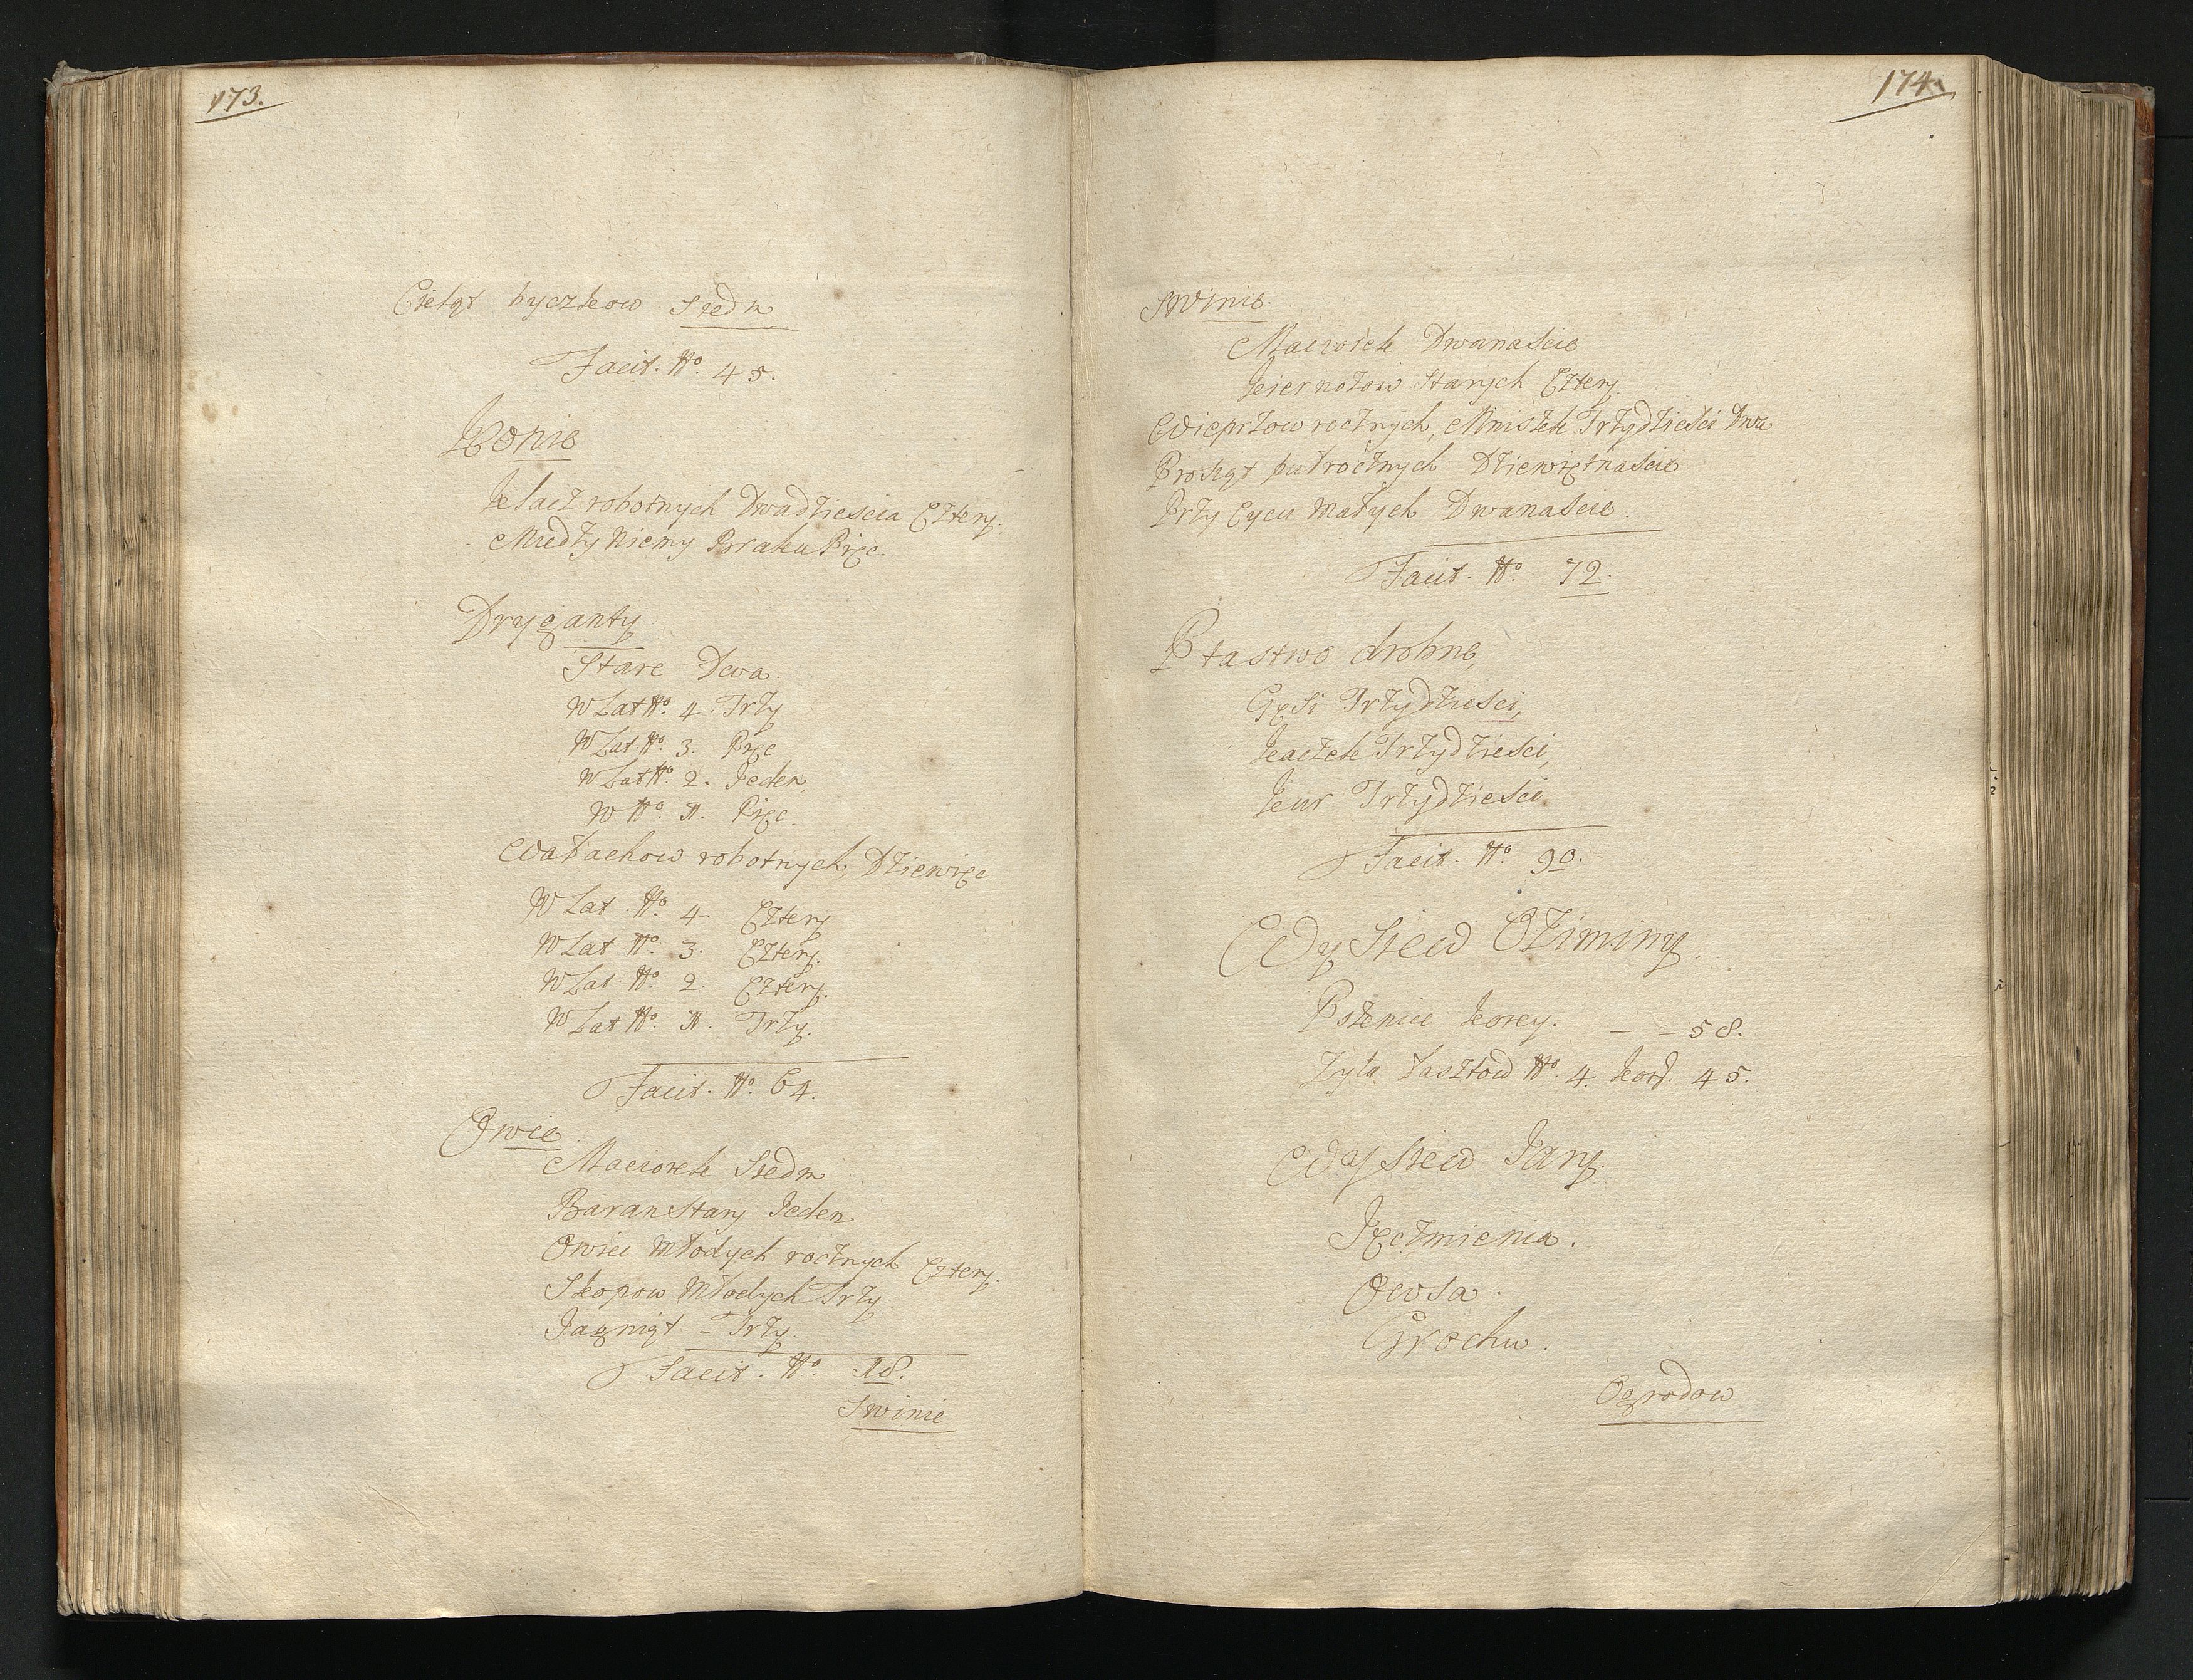 173.
Cieląt byczkow Siedm
Facit. No. 45.
Konie
Klacz robotnych Dwadziescia Cztery.
Miedzy niemy Braku Pięc.
Dryganty
Stare Dwa.
W Lat No. 4. Trzy
W Lat. No. 3. Pięc
W Lat No. 2. Jeden,
W No. 1. Pięc.
Wałachow robotnych, Dziewięc
W Lat. No. 4. Cztery
W Lat No. 3. Cztery.
W Lat No. 2. Cztery.
W Lat No. 1. Trzy.
Facit. No. 64.
Owie
Maciorek Siedm
Baran Stary Jeden.
Owiec Młodych rocznych Cztery.
Skopow Młodych Trzy
Jagniąt - Trzy.
Facit. No. 18.
Swinie
174.
Swinie.
Maciorek Dwanascie
Kiernozow Starych Cztery.
Wieprzow rocznych, Mniszek Trzydziesci Dwa
Prosiąt puł rocznych Dziewiętnascie
Przy Cycu Małych Dwanascie.
Facit. No. 72.
Ptastwo drobne,
Gęsi Trzydziesci,
Kaczek Trzydziesci,
Kur Trzydziesci.
Facit. No. 90.
Wysiew Oziminy.
Pszenice Korcy. - - 58.
Zyta Łasztow No. 4. Korc. 45.
Wysiew Jary.
Jęczmienia.
Owsa.
Grochu.
Ogrodow